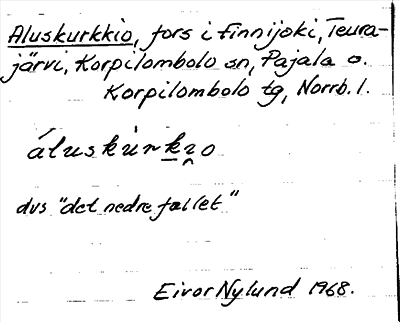 Aluskurkkio, fors i Finnijoki, Teura-
järvi, Korpilombolo sn, Pajala o.
Korpilombolo tg, Norrb. l.
áluskùrk̲i̯o
dvs "det nedre fallet"
Eivor Nylund 1968.